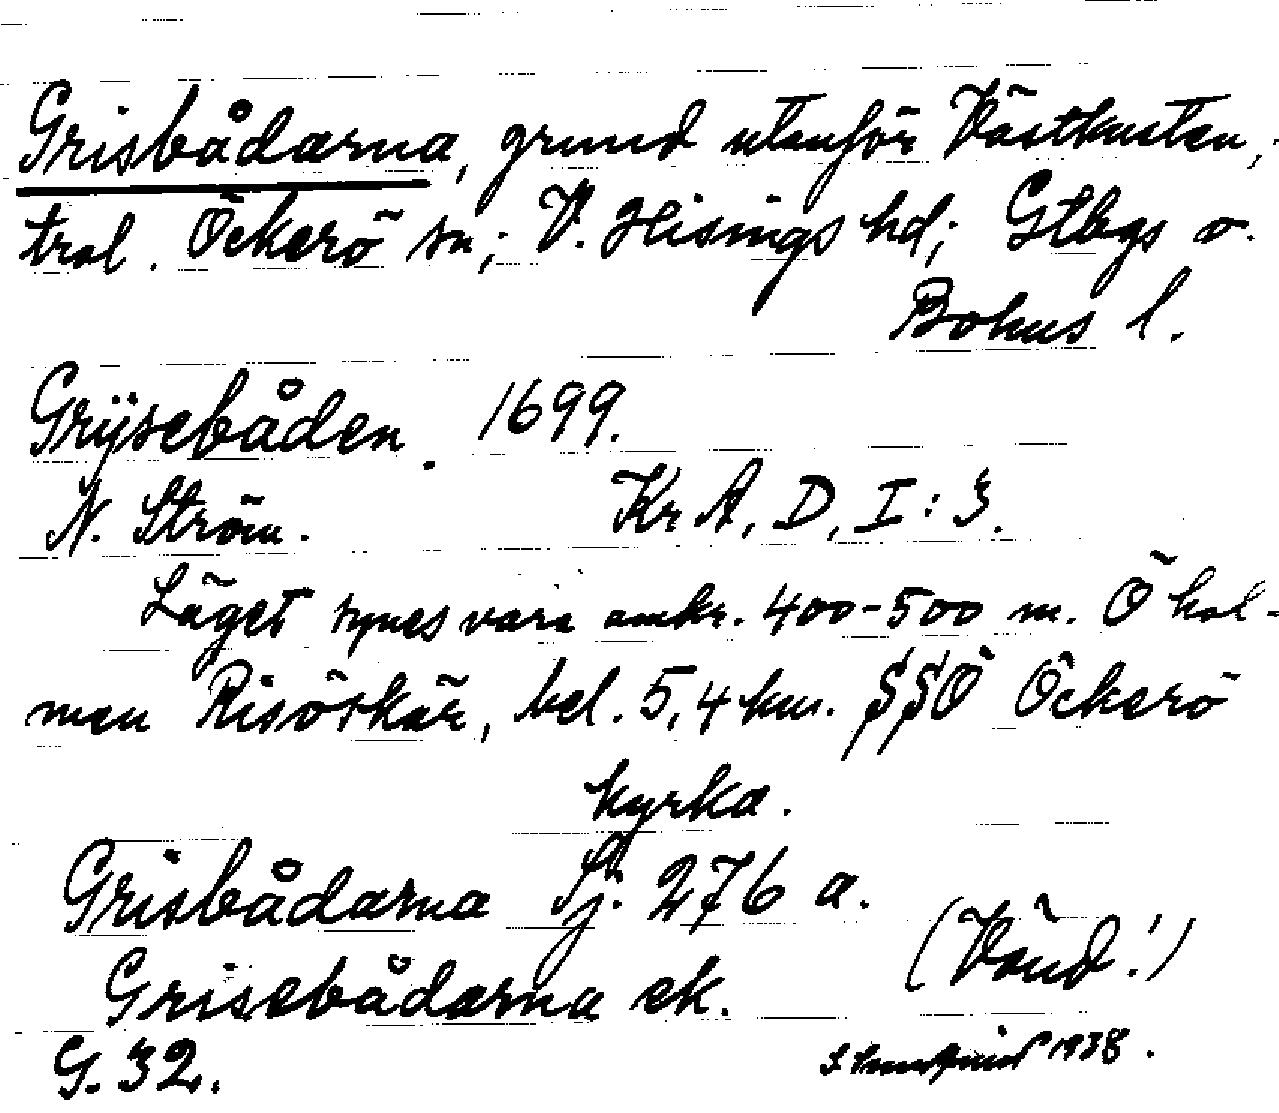 Grisbådarna, grund utanför Västkusten,
trol. Öckerö sn; V. Hisings hd; Gtbgs o.
Bohus l.
Grÿsebåden. 1699.
N. Ström. Kr A, D, I:3.
Läget synes vara omkr. 400-500 m. Ö hol-
men Risöskär, bel. 5,4 km. SSÖ Öckerö
kyrka.
Grisbådarna Sj. 276 a.
Grisebådarna ek. (Vänd!)
G. 32. 1938.